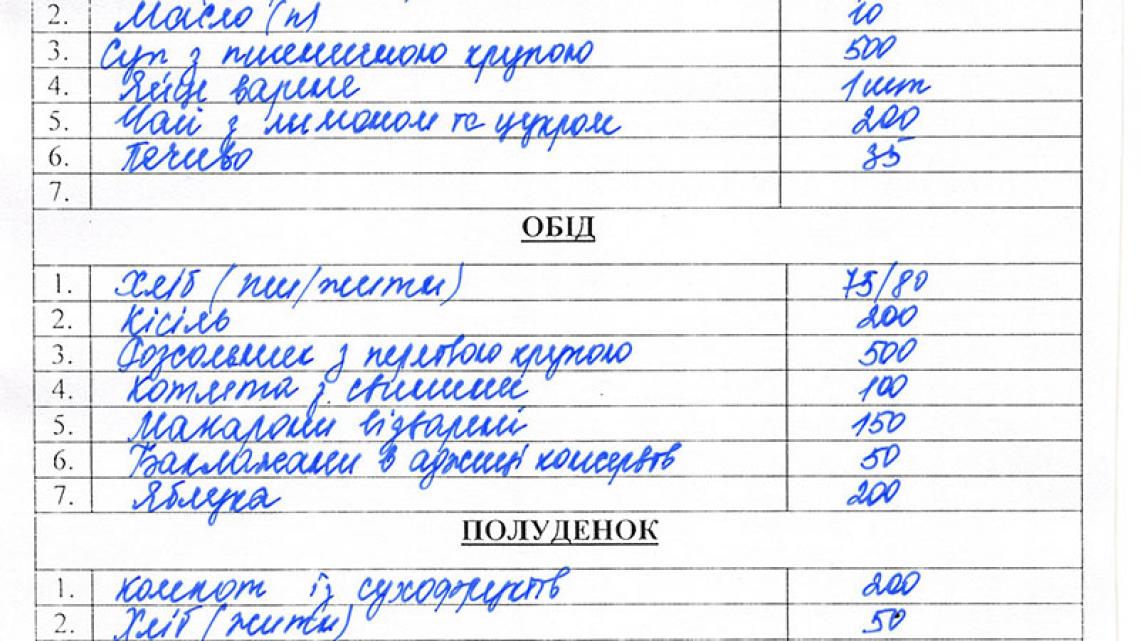 2. Масло (п) 10
3. Суп з пшеничною крупою 500
4. Яйце варене 1 шт
5. Чай з лимоном та цукром 200
6. Печиво 35
7.
ОБІД
1. Хліб (пш/житн) 75/80
2. Кісіль 200
3. Розсольник з перловою крупою 500
4. Котлета з свинини 100
5. Макарони відварені 150
6. Баклажани в аджиці консерв 50
7. Яблука 200
ПОЛУДЕНОК
1. Компот із сухофруктів 200
2. Хліб (житн) 50